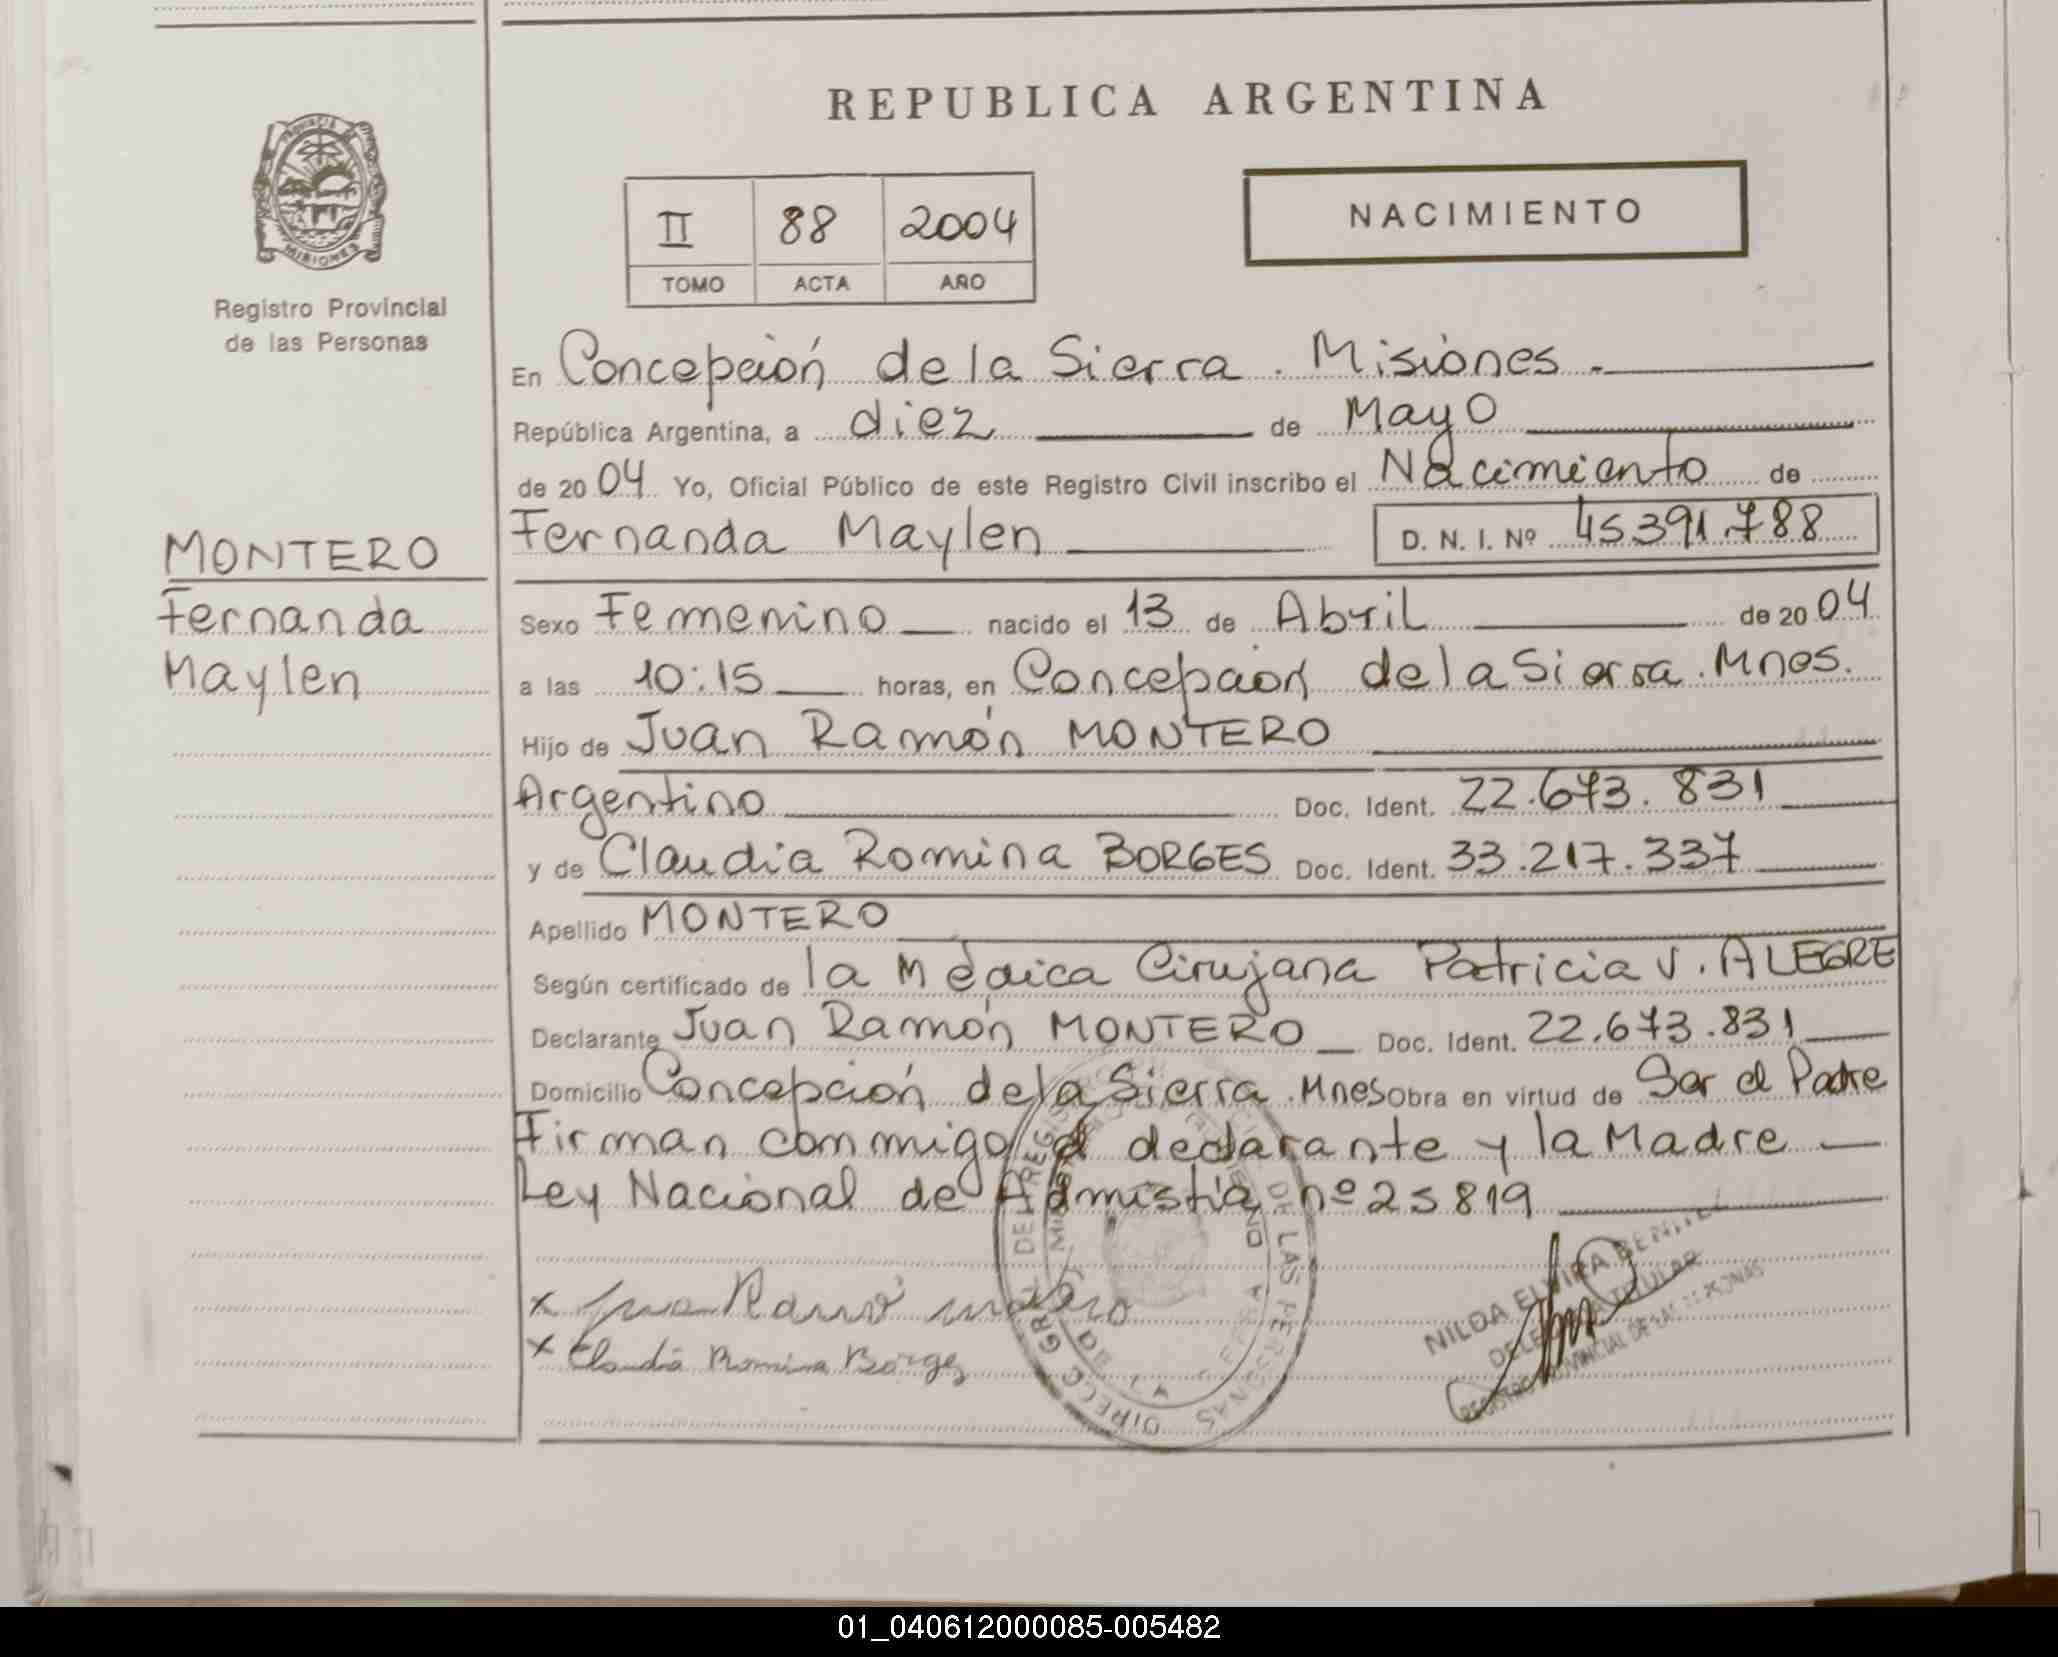 REPUBLICA ARGENTINA
PROVINCIA DE MISIONES
Registro Provincial
de las Personas
II 88 2004
TOMO ACTA AÑO
NACIMIENTO
En Concepción de la Sierra . Misiones .
República Argentina, a diez de Mayo
de 2004 Yo, Oficial Público de este Registro Civil inscribo el Nacimiento de
MONTERO
Fernanda
Maylen
Fernanda Maylen D. N. I. Nº 45.391.788
Sexo Femenino nacido el 13 de Abril de 2004
a las 10:15 horas, en Concepción de la Sierra . Mnes.
Hijo de Juan Ramón MONTERO
Argentino Doc. Ident. 22.673.831
y de Claudia Romina BORGES Doc. Ident. 33.217.337
Apellido MONTERO
Según certificado de la Médica Cirujana Patricia V. ALEGRE
Declarante Juan Ramón MONTERO Doc. Ident. 22.673.831
Domicilio Concepción de la Sierra . Mnes Obra en virtud de Ser el Padre
Firman conmigo el declarante y la Madre
Ley Nacional de Admistía nº 25819
x Juan Ramó montero
x Claudia Romina Borges
DIRECC GRAL DEL REGISTRO DE LAS PERSONAS
NILDA ELVIRA
DELEGADA TITULAR
REGISTRO PROVINCIAL DE LAS PERSONAS
01_040612000085-005482